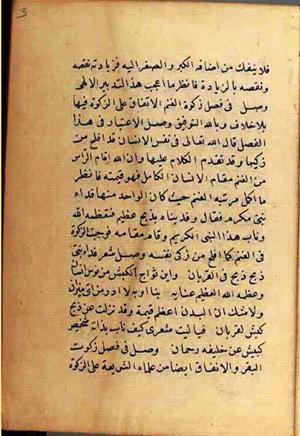 فلا ينفك من اضافه الكبر والصغر اليه فزيادته نقصه
ونقصه بالزيادة فانظر ما اعجب هذا التدبير الالهى
وصل فى فصل زكوة الغنم الاتفاق على الزكوة فيها
بلا خلاف وبالله التوفيق وصل الاعتبار فى هذا
الفصل قال الله تعالى فى نفس الانسان قد افلح من
زكيها وقد تقدم الكلام عليها وان الله اقام الراس
من الغنم مقام الانسان الكامل فهو قيمته فانظر
ما اكمل مرتبه الغنم حيث كان الواحد منها فداء
نبى مكرم فقال وفديناه بذبح عظيم فعظمه الله
وناب هذا النبى الكريم وقام مقامه فوجبت الزكوة
فى الغنم كما افلح من زكى نفسه وصل شعر فداء نبى
ذبح ذبح فى القربان واين ثواج الكبش من نوس انسان
وعظمه الله العظيم عنايه بنا او به لا ادر من اى ميزان
ولا شك ان البدن اعظم قيمة وقد نزلت عن ذبح
كبش لقربان فيا ليت شعرى كيف ناب بذاته شخيص
كبيش عن خليفه رحمان وصل فى فصل زكوت
البقر والاتفاق ايضا من علماء الشريعة على الزكوة